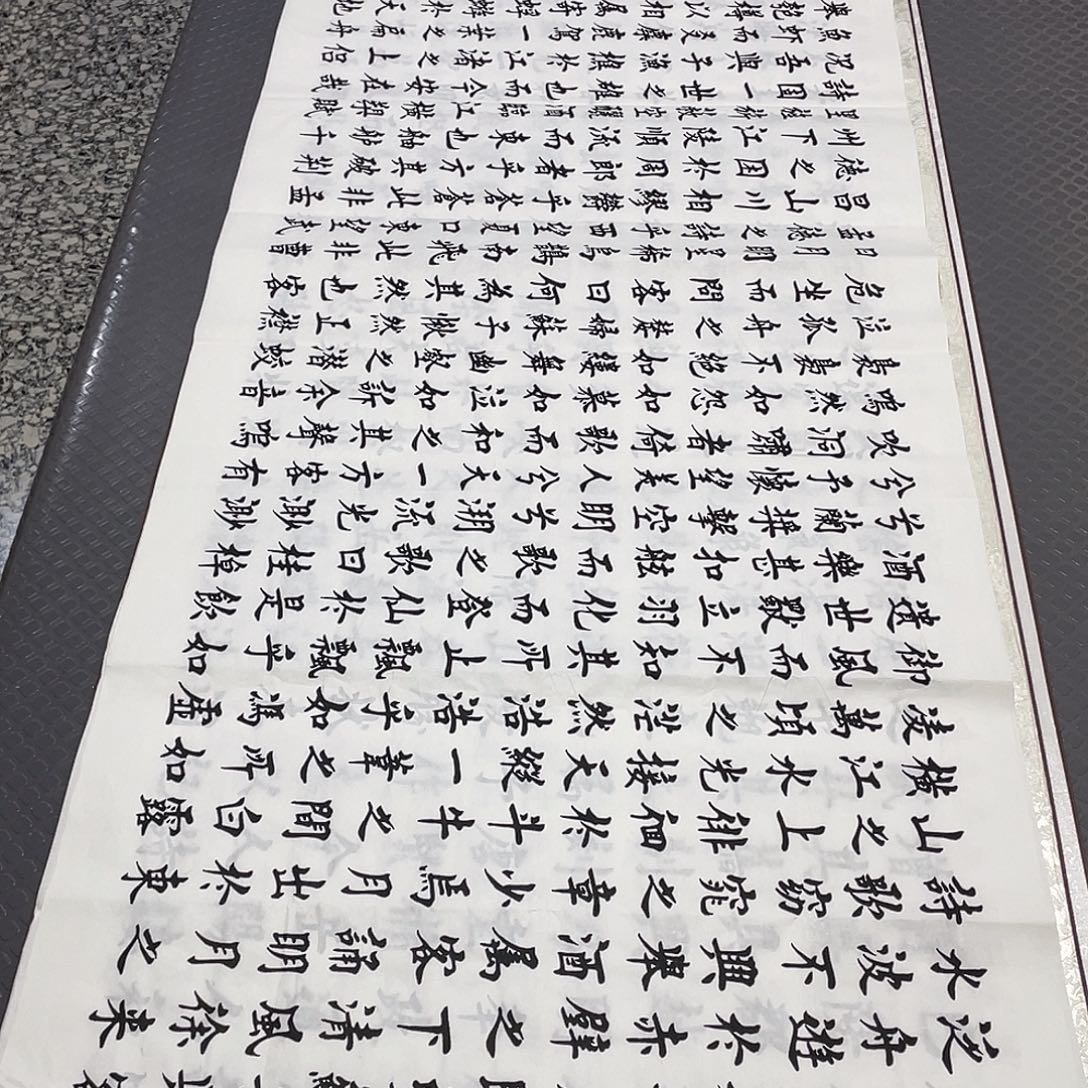 泛舟遊於赤壁之下清風徐來
水波不興舉酒屬客誦明月之
詩歌窈窕之章少焉月出於東
山之上徘徊於斗牛之間白露
橫江水光接天縱一葦之所如
凌萬頃之茫然浩浩乎如馮虛
御風而不知其所止飄飄乎如
遺世獨立羽化而登仙於是飲
酒樂甚扣舷而歌之歌曰桂棹
兮蘭槳擊空明兮溯流光渺渺
兮予懷望美人兮天一方客有
吹洞嘯者倚歌而和之其聲嗚
嗚然如怨如慕如泣如訴余音
裊裊不絕如縷舞幽壑之潛蛟
泣孤舟之嫠婦蘇子愀然正襟
危坐而問客曰何為其然也客
曰月明星稀烏鵲南飛此非曹
孟德之詩乎西望夏口東望武
昌山川相繆鬱乎蒼蒼此非孟
德之困於周郎者乎方其破荊
州下江陵順流而東也舳艫千
里旌旗蔽空釃酒臨江橫槊賦
詩固一世之雄也而今安在哉
況吾與子漁樵於江渚之上侶
魚蝦而友麋鹿駕一葉之扁舟
舉匏樽以相屬寄蜉蝣於天地